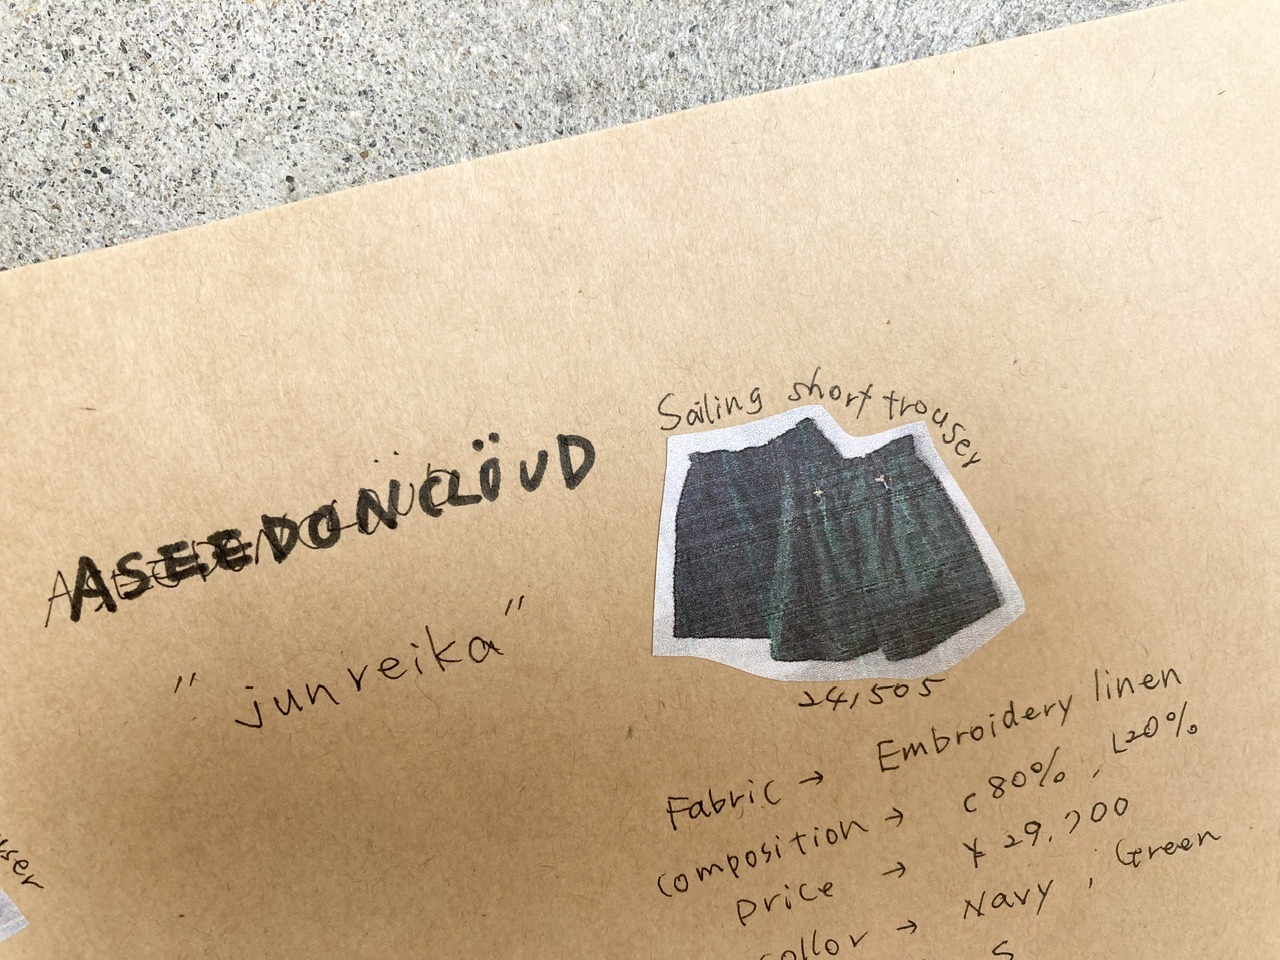 ASEEDONCLÖUD
"junreika"
Sailing short trouser
24,505
Fabric → Embroidery linen
composition → c80%, L20%
price → ¥29.700
collor → Navy, Green
S